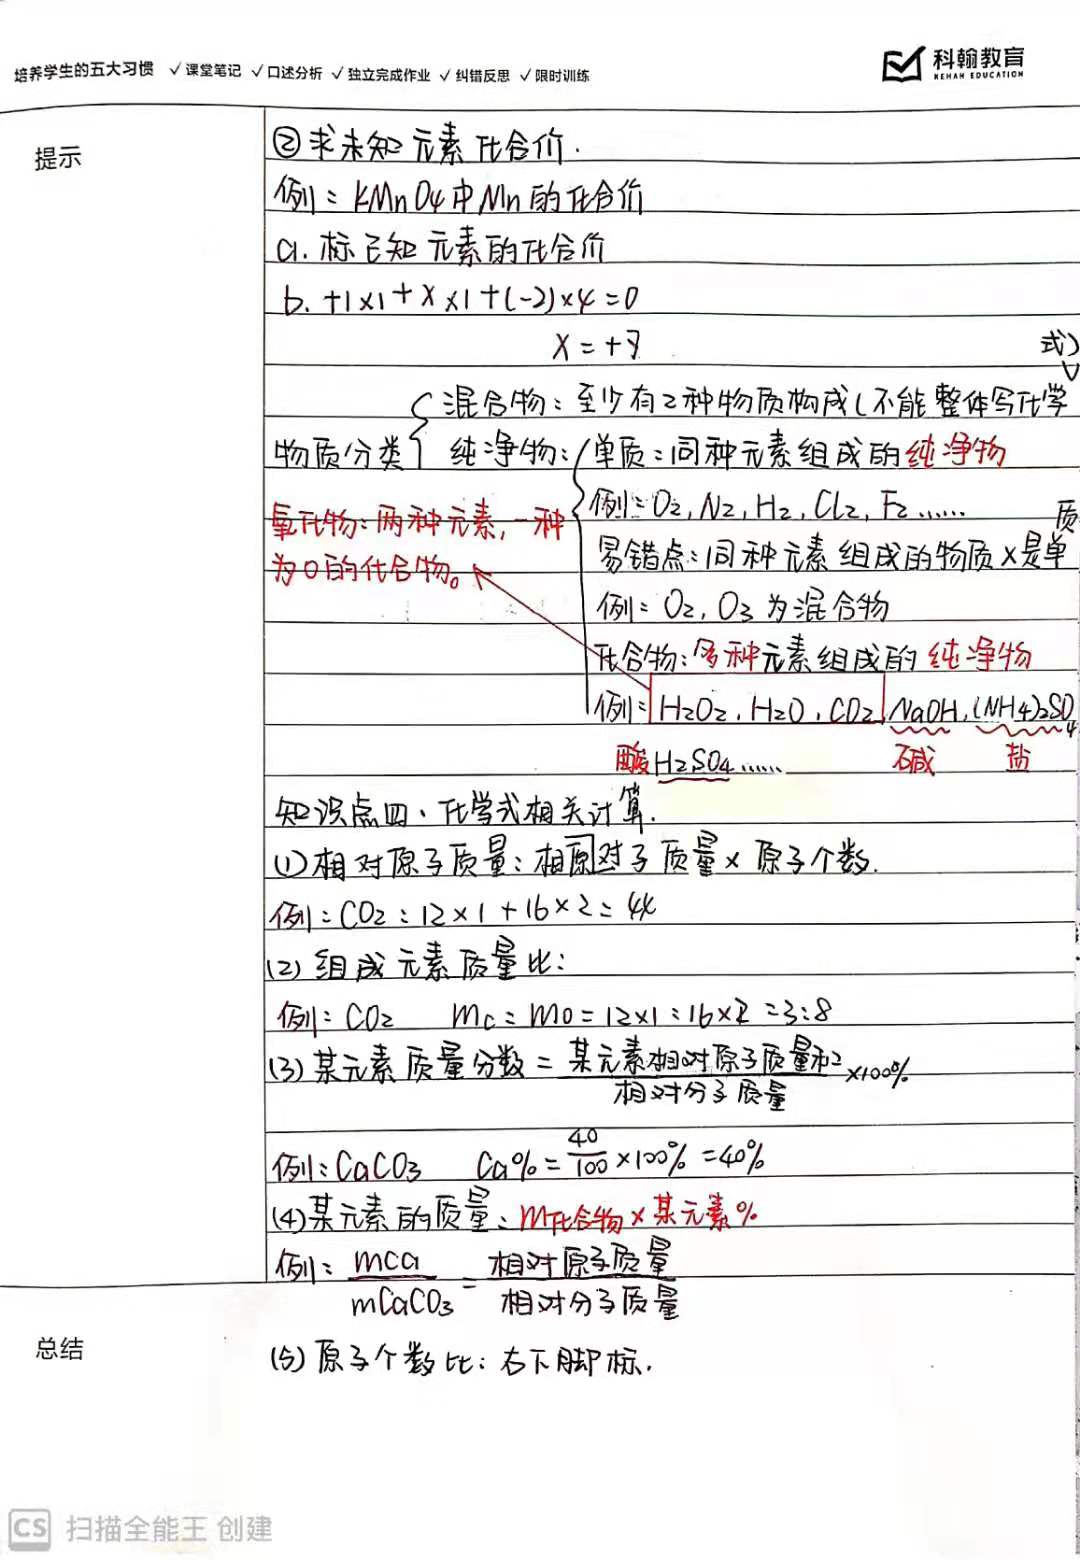 培养学生的五大习惯 √课堂笔记 √口述分析 √独立完成作业 √纠错反思 √限时训练
科翰教育
KEHAN EDUCATION
提示
②求未知元素化合价.
例: KMnO4中Mn的化合价
a. 标已知元素的化合价
b. +1×1+x×1+(-2)×4=0
x=+7
物质分类
混合物: 至少有2种物质构成(不能整体写化学式)
纯净物: 单质: 同种元素组成的纯净物
例: O2, N2, H2, Cl2, F2……
易错点: 同种元素组成的物质×是单质
例: O2, O3为混合物
化合物: 多种元素组成的纯净物
例: H2O2, H2O, CO2, NaOH, (NH4)2SO4
碱 盐
酸 H2SO4……
氧化物: 两种元素, 一种
为O的化合物。
知识点四、化学式相关计算.
(1)相对原子质量: 相原对子质量×原子个数.
例: CO2: 12×1+16×2=44
(2) 组成元素质量比:
例: CO2 mC:mO=12×1:16×2=3:8
(3)某元素质量分数=某元素相对原子质量和/相对分子质量×100%
例: CaCO3 Ca%=40/100×100%=40%
(4)某元素的质量: m化合物×某元素%
例: mCa/mCaCO3=相对原子质量/相对分子质量
总结
(5)原子个数比: 右下脚标.
CS 扫描全能王 创建